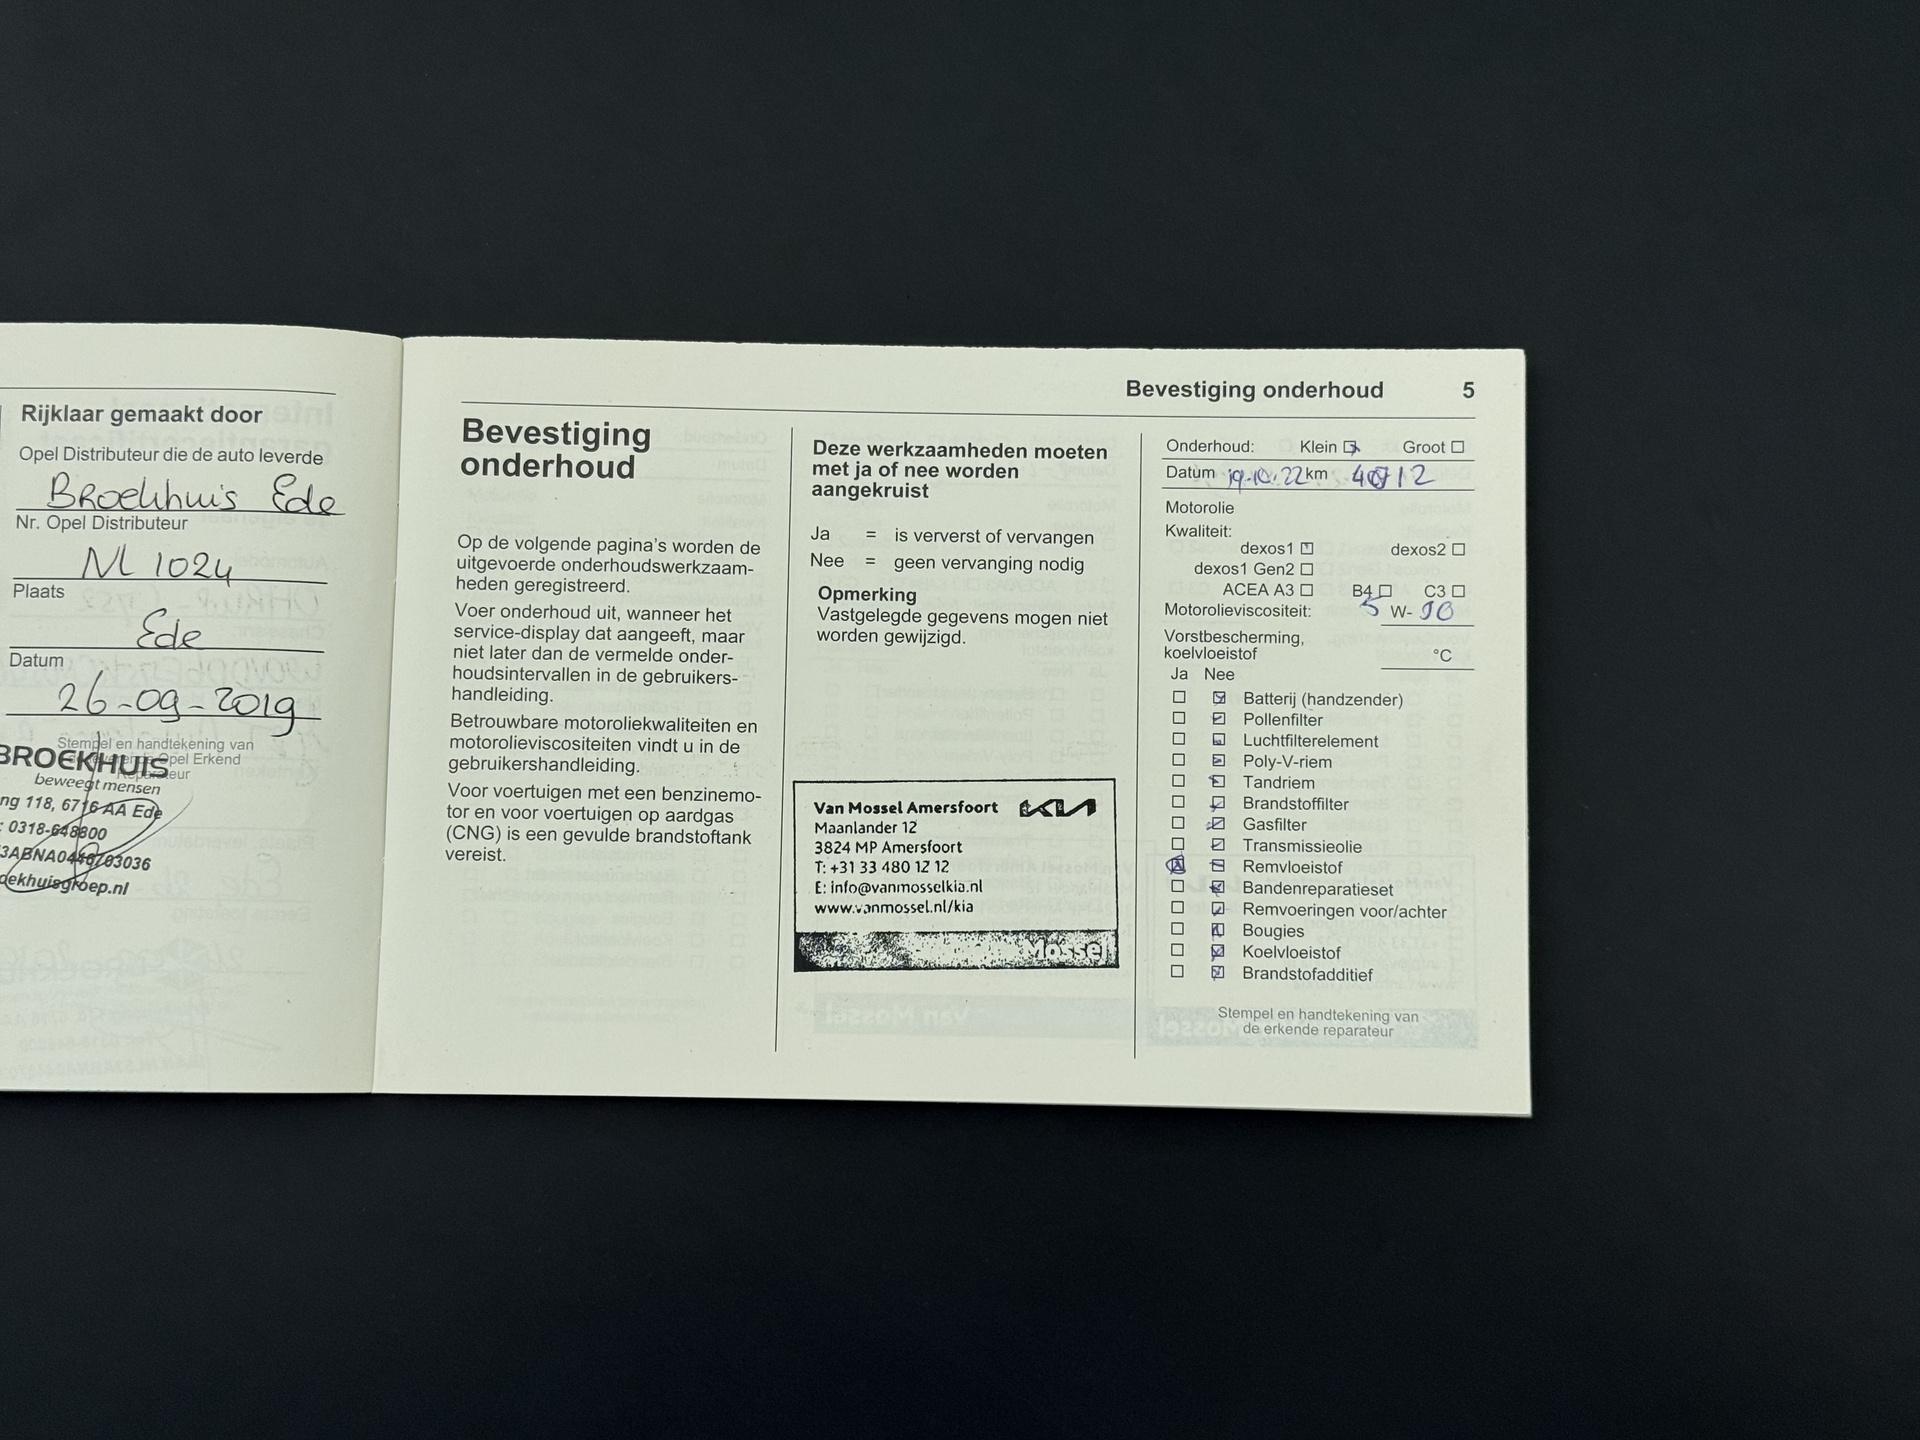 Rijklaar gemaakt door
Opel Distributeur die de auto leverde
Broekhuis Ede
Nr. Opel Distributeur
NL 1024
Plaats
Ede
Datum
26-09-2019
Stempel en handtekening van
Opel Erkend
Reparateur
BROEKHUIS
beweegt mensen
ng 118, 6716 AA Ede
: 0318-648800
ekhuisgroep.nl
Bevestiging onderhoud 5
Bevestiging
onderhoud
Op de volgende pagina's worden de
uitgevoerde onderhoudswerkzaam-
heden geregistreerd.
Voer onderhoud uit, wanneer het
service-display dat aangeeft, maar
niet later dan de vermelde onder-
houdsintervallen in de gebruikers-
handleiding.
Betrouwbare motoroliekwaliteiten en
motorolieviscositeiten vindt u in de
gebruikershandleiding.
Voor voertuigen met een benzinemo-
tor en voor voertuigen op aardgas
(CNG) is een gevulde brandstoftank
vereist.
Deze werkzaamheden moeten
met ja of nee worden
aangekruist
Ja = is ververst of vervangen
Nee = geen vervanging nodig
Opmerking
Vastgelegde gegevens mogen niet
worden gewijzigd.
Van Mossel Amersfoort KIA
Maanlander 12
3824 MP Amersfoort
T: +31 33 480 12 12
E: info@vanmosselkia.nl
www.vanmossel.nl/kia
Mossel
Onderhoud: Klein Groot
Datum 19.10.22 km
Motorolie
Kwaliteit:
dexos1 dexos2
dexos1 Gen2
ACEA A3 B4 C3
Motorolieviscositeit: 5 W-
Vorstbescherming,
koelvloeistof °C
Ja Nee
Batterij (handzender)
Pollenfilter
Luchtfilterelement
Poly-V-riem
Tandriem
Brandstoffilter
Gasfilter
Transmissieolie
Remvloeistof
Bandenreparatieset
Remvoeringen voor/achter
Bougies
Koelvloeistof
Brandstofadditief
Stempel en handtekening van
de erkende reparateur